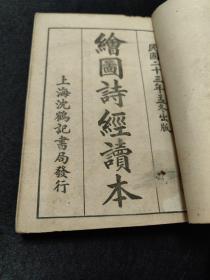 民國二十三年五月出版
繪圖詩經讀本
上海沈鶴記書局發行